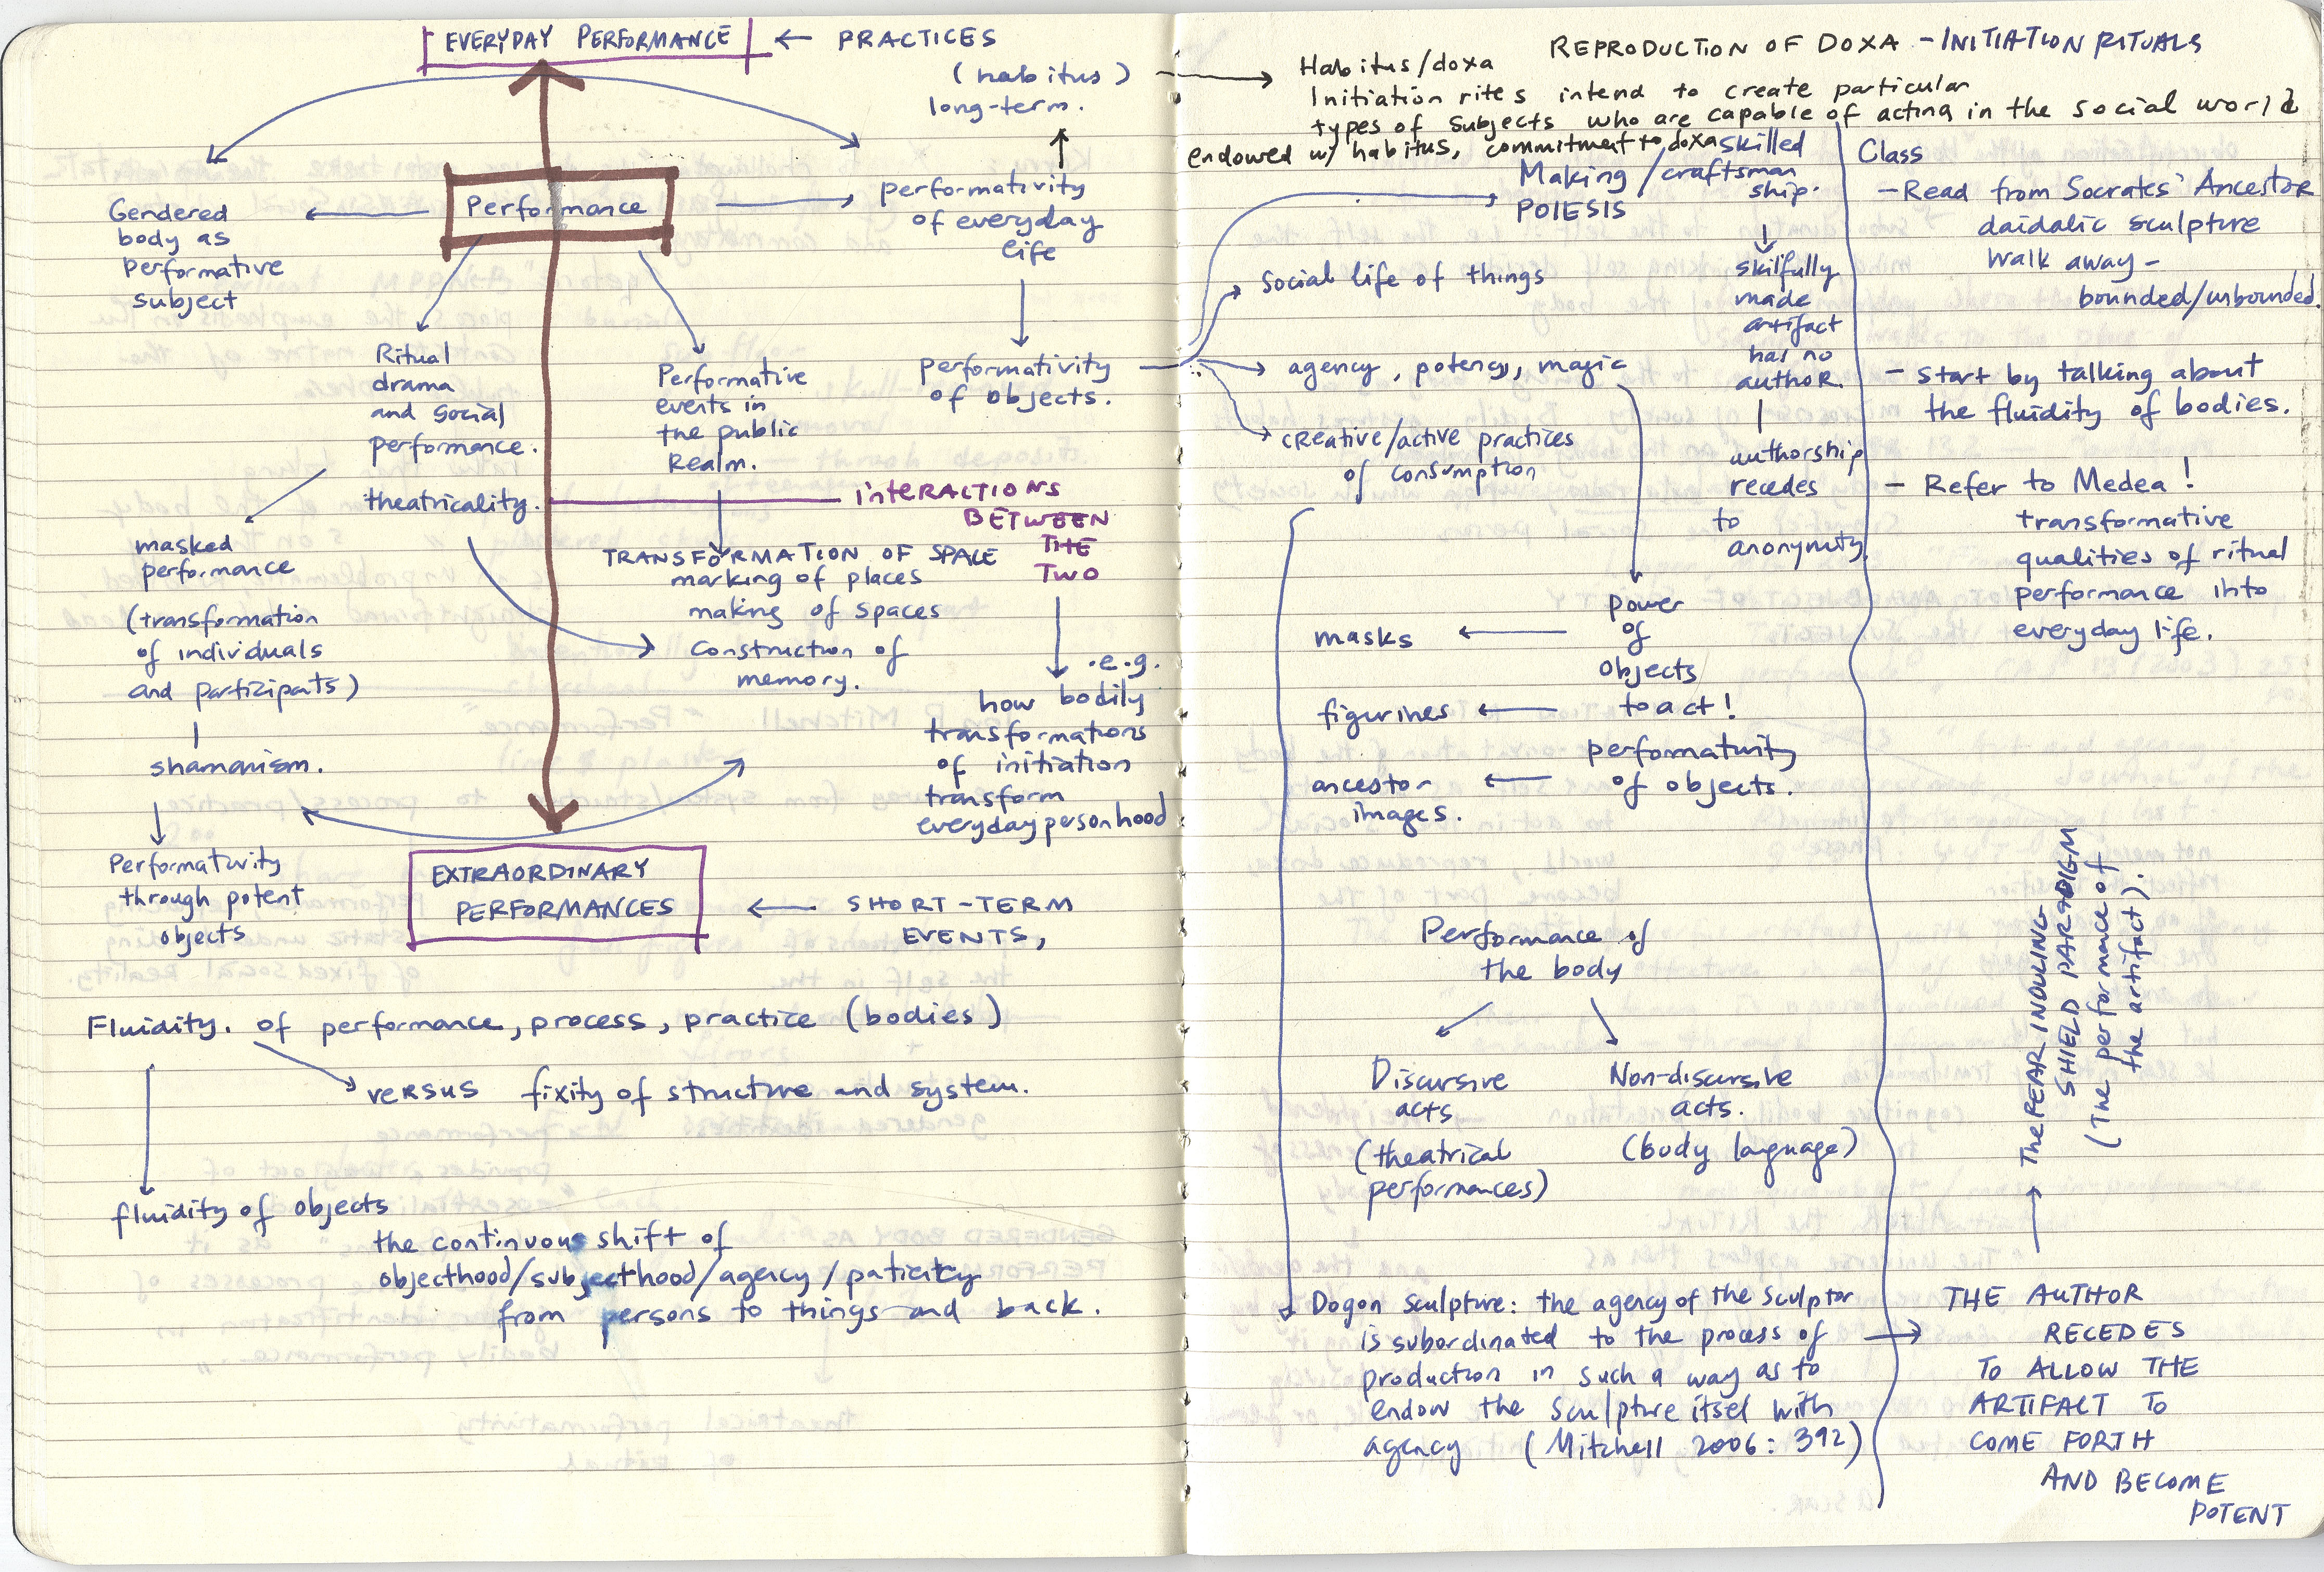 EVERYDAY PERFORMANCE ← PRACTICES
(habitus)
long-term.
Performance
Gendered
body as
performative
subject
performativity
of everyday
life
Ritual
drama
and social
performance.
theatricality.
Performative
events in
the public
Realm.
performativity
of objects.
interactions
BETWEEN
THE
TWO
masked
performance
(transformation
of individuals
and participants)
shamanism.
Performativity
through potent
objects
TRANSFORMATION OF SPACE
marking of places
making of spaces
Construction of
memory.
.e.g.
how bodily
transformations
of initiation
transform
everyday personhood
EXTRAORDINARY
PERFORMANCES
← SHORT-TERM
EVENTS,
Fluidity. of performance, process, practice (bodies)
versus fixity of structure and system.
fluidity of objects
the continuous shift of
objecthood/subjecthood/agency/paticity
from persons to things and back.
REPRODUCTION OF DOXA - INITIATION RITUALS
Habitus/doxa
Initiation rites intend to create particular
types of subjects who are capable of acting in the social world
endowed w/ habitus, commitment to doxa
Making / skilled
craftsman
ship.
POIESIS
Social life of things
agency, potency, magic
creative/active practices
of consumption
skilfully
made
artifact
has no
author.
authorship
recedes
to
anonymity
power
of
objects
to act!
performativity
of objects.
masks
figurines
ancestor
images.
Performance of
the body
Discursive
acts
(theatrical
performances)
Non-discursive
acts.
(body language)
Dogon sculpture: the agency of the sculptor
is subordinated to the process of
production in such a way as to
endow the sculpture itsel with
agency (Mitchell 2006: 392)
Class
- Read from Socrates' Ancestor
daidalic sculpture
walk away -
bounded/unbounded.
- start by talking about
the fluidity of bodies.
- Refer to Medea!
transformative
qualities of ritual
performance into
everyday life.
The FEAR INDUCING
SHIELD PARADIGM
(The performance of
the artifact).
THE AUTHOR
RECEDES
TO ALLOW THE
ARTIFACT TO
COME FORTH
AND BECOME
POTENT